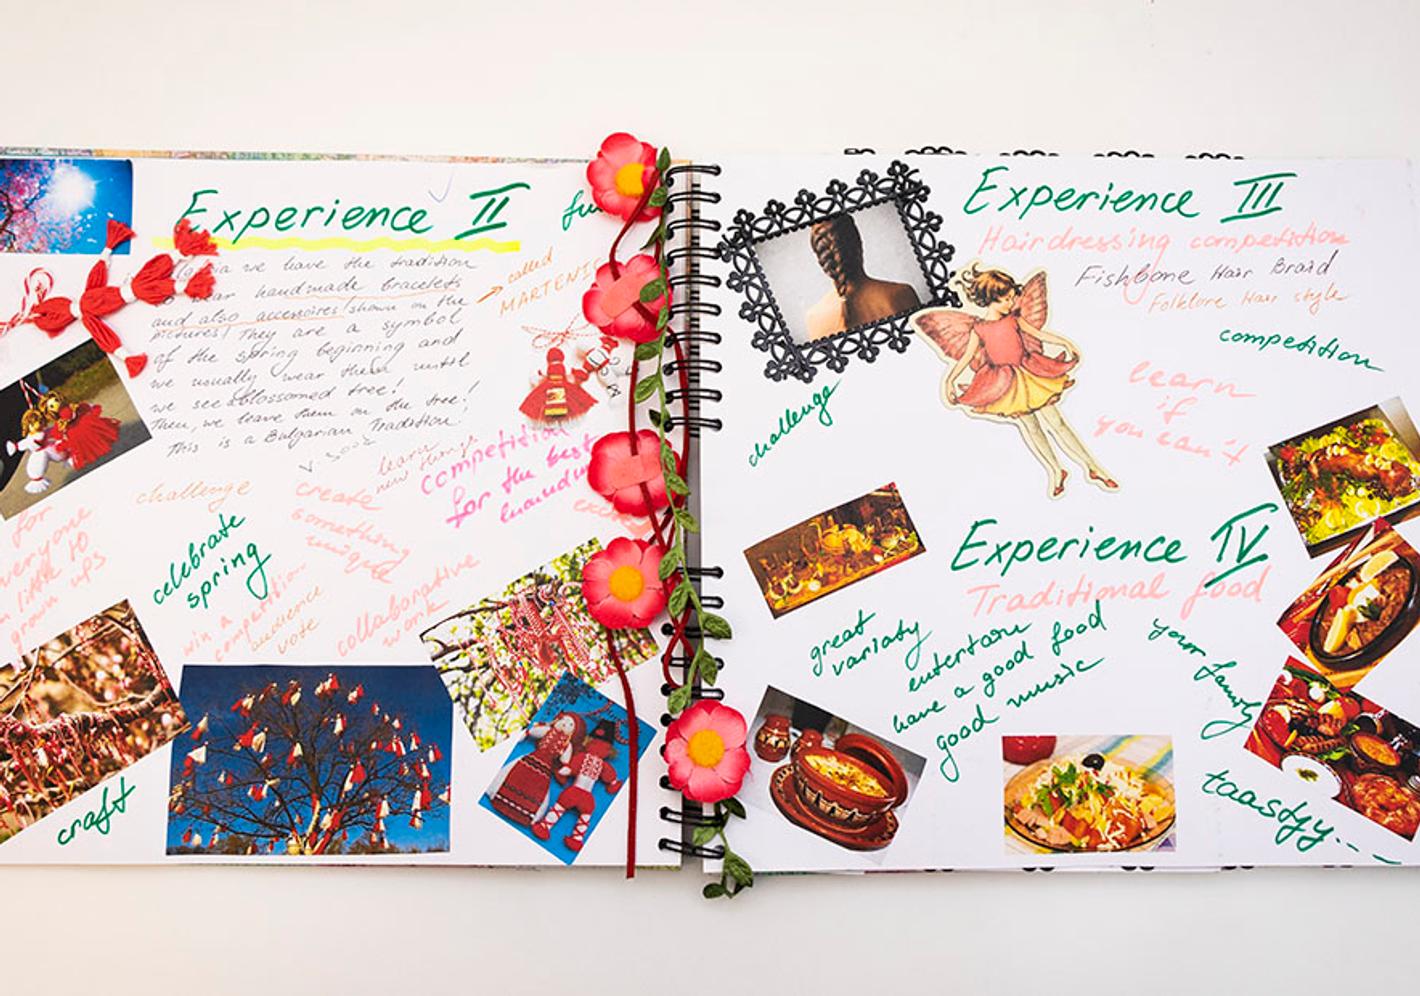 Experience II
we have the tradition
wear handmade bracelets
and also accessoires (shown on the
pictures! They are a symbol
of the spring beginning and
we usually wear them until
we see a blossomed tree!
Then, we leave them on the tree!
This is a Bulgarian Tradition!
called
MARTENIS
learn
new things
competition
for the best
challenge
create
something
unique
for
everyone
little to
grown ups
celebrate
spring
win a
competition
audience
vote
collaborative
work
craft
Experience III
Hairdressing competition
Fishbone Hair Braid
Folklore Hair style
competition
learn
if
you can't
challenge
Experience IV
Traditional food
great
variaty
entertain
have a good food
good music
your family
taastyy...